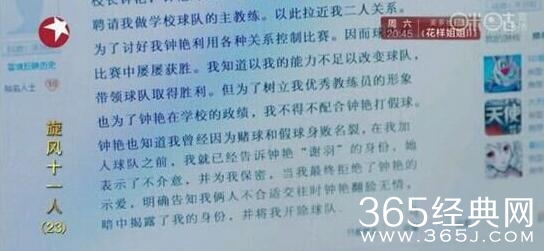 校长钟艳,
聘请我做学校球队的主教练。以此拉近我二人关系。
为了讨好我钟艳利用各种关系控制比赛。因而球队
比赛中屡屡获胜。我知道以我的能力不足以改变球队,
带领球队取得胜利。但为了树立我优秀教练员的形象
也为了钟艳在学校的政绩,我不得不配合钟艳打假球。
钟艳也知道我曾经因为赌球和假球身败名裂,在我加
人球队之前,我就已经告诉钟艳“谢羽”的身份,她
表示了不介意,并为我保密,当我最终拒绝了钟艳的
示爱,明确告知我俩人不合适交往时钟艳翻脸无情,
暗中揭露了我的身份,并将我开除球队.
周六
20:45
《花样姐姐》
咪咕
知名人士
旋风十一人
(23)
天使
365经典网
www.365J.com